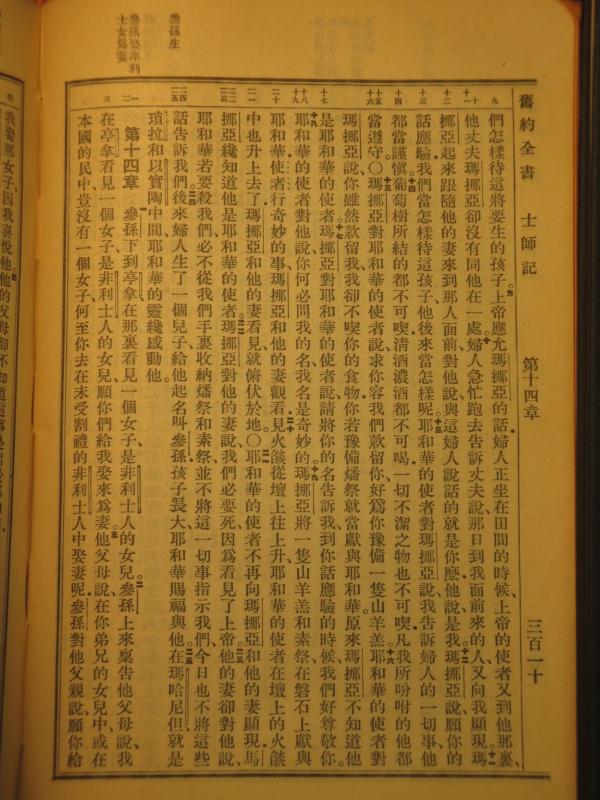 舊約全書 士師記 第十四章 三百一十
們怎樣待這將要生的孩子。上帝應允瑪挪亞的話、婦人正坐在田間的時候、上帝的使者又到他那裏、
他丈夫瑪挪亞卻沒有同他在一處。婦人急忙跑去告訴丈夫說、那日到我面前來的人、又向我顯現。瑪
挪亞起來跟隨他的妻來到那人面前、對他說、與這婦人說話的就是你麼、他說、是我。瑪挪亞說、願你的
話應驗、我們當怎樣待這孩子、他後來當怎樣呢。耶和華的使者對瑪挪亞說、我告訴婦人的一切事、他
都當謹愼。葡萄樹所結的都不可喫、清酒濃酒都不可喝、一切不潔之物也不可喫、凡我所吩咐的、他都
當遵守。○瑪挪亞對耶和華的使者說、求你容我們款留你、好爲你豫備一隻山羊羔。耶和華的使者對
瑪挪亞說、你雖然款留我、我卻不喫你的食物、你若豫備燔祭、就當獻與耶和華、原來瑪挪亞不知道他
是耶和華的使者。瑪挪亞對耶和華的使者說、請將你的名告訴我、到你話應驗的時候、我們好尊敬你。
耶和華的使者對他說、你何必問我的名、我名是奇妙的。瑪挪亞將一隻山羊羔和素祭、在磐石上獻與
耶和華、使者行奇妙的事、瑪挪亞和他的妻觀看。見火燄從壇上往上升、耶和華的使者在壇上的火燄
中也升上去了、瑪挪亞和他的妻看見、就俯伏於地。○耶和華的使者不再向瑪挪亞和他的妻顯現、瑪
挪亞纔知道他是耶和華的使者。瑪挪亞對他的妻說、我們必要死、因爲看見了上帝。他的妻卻對他說、
耶和華若要殺我們、必不從我們手裏收納燔祭和素祭、並不將這一切事指示我們、今日也不將這些
話告訴我們。後來婦人生了一個兒子、給他起名叫參孫、孩子長大、耶和華賜福與他。在瑪哈尼但、就是
瑣拉和以實陶中間、耶和華的靈纔感動他。
第十四章 參孫下到亭拿、在那裏看見一個女子、是非利士人的女兒。參孫上來稟告他父母說、我
在亭拿看見一個女子、是非利士人的女兒、願你們給我娶來爲妻。他父母說、在你弟兄的女兒中、或在
本國的民中、豈沒有一個女子、何至你去在未受割禮的非利士人中娶妻呢、參孫對他父親說、願你給
我娶那女子、因我喜悅他。他的父母卻不知道這事是
參孫生
參孫娶非利士女爲妻